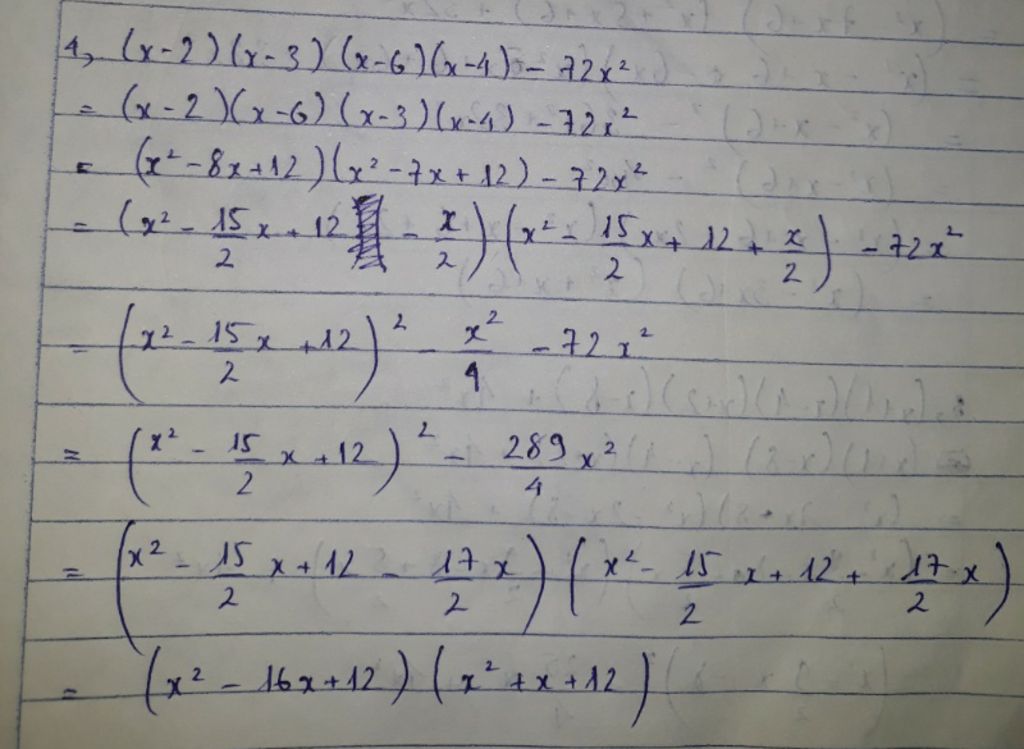 4, (x-2)(x-3)(x-6)(x-4) - 72x²
= (x-2)(x-6)(x-3)(x-4) - 72x²
= (x² - 8x + 12)(x² - 7x + 12) - 72x²
= (x² - 15/2 x + 12 - x/2)(x² - 15/2 x + 12 + x/2) - 72x²
= (x² - 15/2 x + 12)² - x²/4 - 72x²
= (x² - 15/2 x + 12)² - 289/4 x²
= (x² - 15/2 x + 12 - 17/2 x)(x² - 15/2 x + 12 + 17/2 x)
= (x² - 16x + 12)(x² + x + 12)